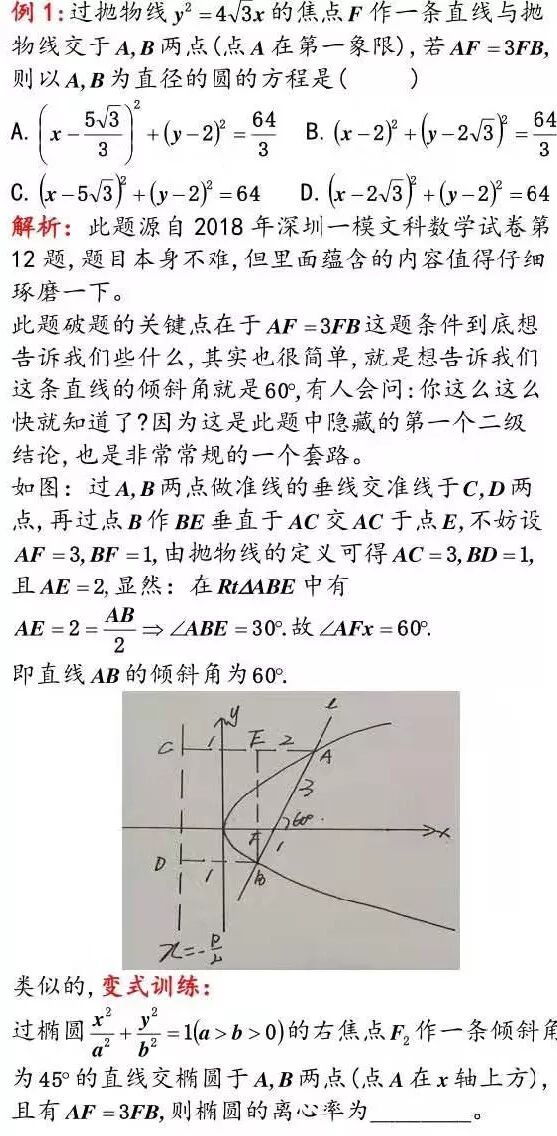 例1:过抛物线 y² = 4√3x 的焦点 F 作一条直线与抛
物线交于 A,B 两点(点 A 在第一象限),若 AF = 3FB,
则以 A,B 为直径的圆的方程是(  )
A. (x - 5√3/3)² + (y - 2)² = 64/3  B. (x - 2)² + (y - 2√3)² = 64/3
C. (x - 5√3)² + (y - 2)² = 64  D. (x - 2√3)² + (y - 2)² = 64
解析：此题源自 2018 年深圳一模文科数学试卷第
12 题,题目本身不难,但里面蕴含的内容值得仔细
琢磨一下。
此题破题的关键点在于 AF = 3FB 这题条件到底想
告诉我们些什么,其实也很简单,就是想告诉我们
这条直线的倾斜角就是 60°,有人会问:你这么这么
快就知道了?因为这是此题中隐藏的第一个二级
结论,也是非常常规的一个套路。
如图：过 A,B 两点做准线的垂线交准线于 C,D 两
点,再过点 B 作 BE 垂直于 AC 交 AC 于点 E,不妨设
AF = 3,BF = 1,由抛物线的定义可得 AC = 3,BD = 1,
且 AE = 2,显然：在 Rt△ABE 中有
AE = 2 = AB/2 ⇒ ∠ABE = 30°.故 ∠AFx = 60°.
即直线 AB 的倾斜角为 60°.
y l
C 1 E 2 A
3
60°
F 1 x
D 1 B
x = -p/2
类似的,变式训练：
过椭圆 x²/a² + y²/b² = 1(a > b > 0)的右焦点 F₂ 作一条倾斜角
为 45° 的直线交椭圆于 A,B 两点(点 A 在 x 轴上方),
且有 AF = 3FB,则椭圆的离心率为________。